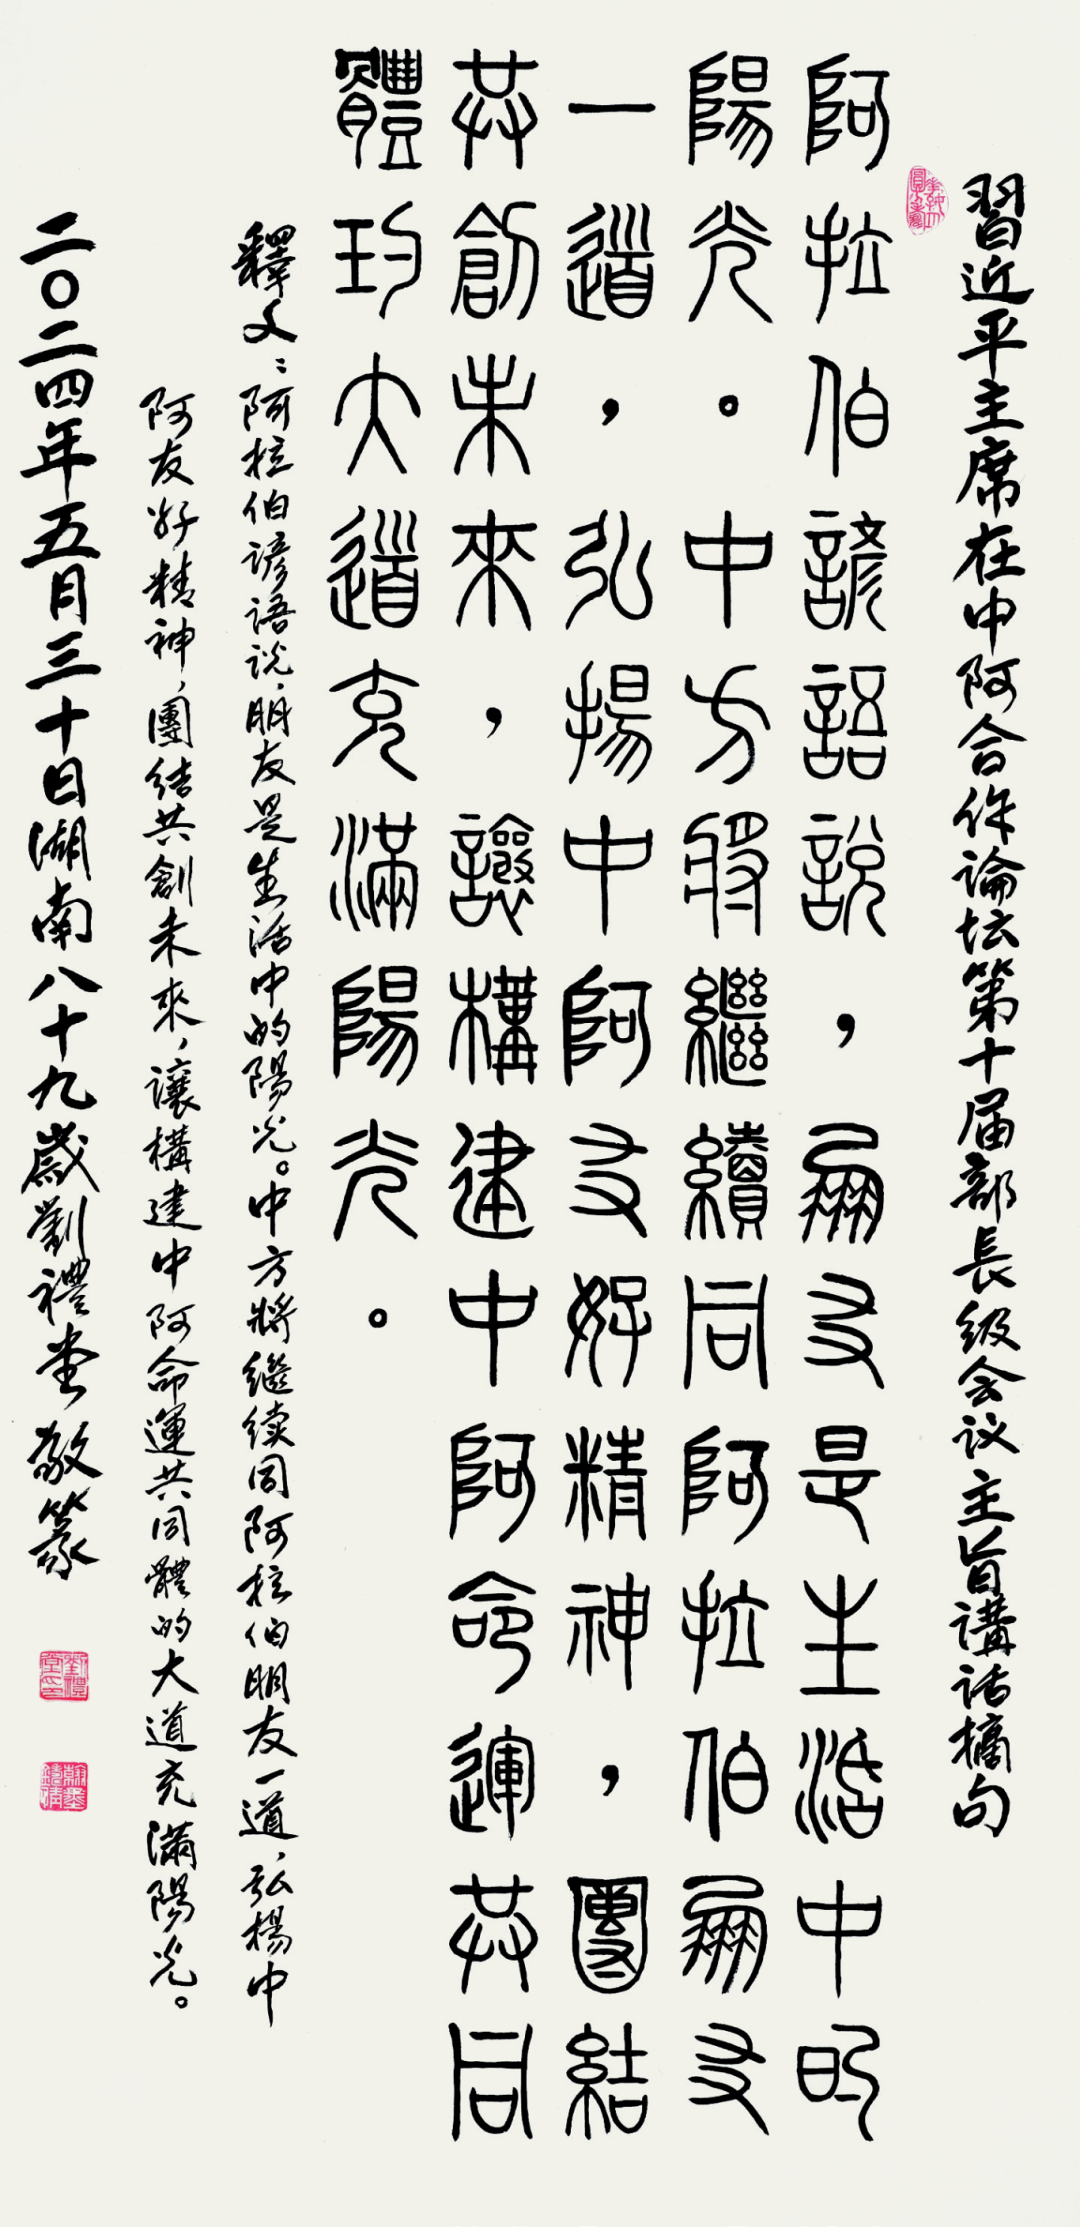 習近平主席在中阿合作論坛第十届部長级会议主旨講话摘句
阿拉伯諺語說，朋友是生活中的
陽光。中方将繼續同阿拉伯朋友
一道，弘揚中阿友好精神，團結
共創未來，讓構建中阿命運共同
體的大道充滿陽光。
釋文：阿拉伯諺语说，朋友是生活中的陽光。中方將繼续同阿拉伯朋友一道，弘楊中
阿友好精神，團结共創未來，讓構建中阿命運共同體的大道充滿陽光。
二〇二四年五月三十日湖南八十九歲劉禮堂敬篆
劉禮堂印